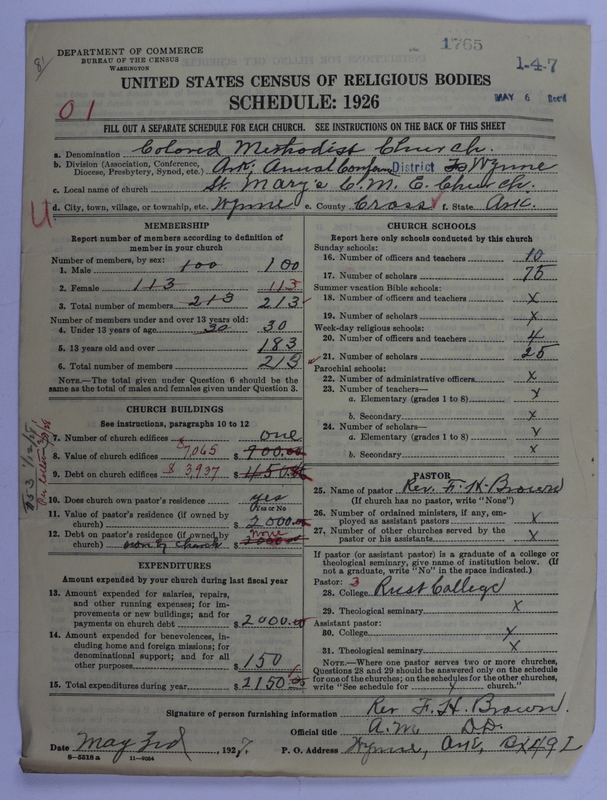 DEPARTMENT OF COMMERCE
BUREAU OF THE CENSUS
WASHINGTON
1765
1-4-7
UNITED STATES CENSUS OF RELIGIOUS BODIES
SCHEDULE: 1926
MAY 6 Rec'd
01
FILL OUT A SEPARATE SCHEDULE FOR EACH CHURCH. SEE INSTRUCTIONS ON THE BACK OF THIS SHEET
a. Denomination Colored Methodist Church.
b. Division (Association, Conference, Diocese, Presbytery, Synod, etc.) Ark. Annual District Wynne
c. Local name of church St. Mary's C. M. E. Church.
d. City, town, village, or township, etc. Wynne e. County Cross f. State Ark.
MEMBERSHIP
Report number of members according to definition of
member in your church
Number of members, by sex:
1. Male 100 100
2. Female 113 113
3. Total number of members 213 213
Number of members under and over 13 years old:
4. Under 13 years of age 30 30
5. 13 years old and over 183
6. Total number of members 213
NOTE.—The total given under Question 6 should be
the same as total of males and females given under Question 3.
CHURCH BUILDINGS
See instructions, paragraphs 10 to 12
7. Number of church edifices one
8. Value of church edifices $7,065 $ 900.00
9. Debt on church edifices $3,937 $ 450.00
10. Does church own pastor's residence yes
Yes or No
11. Value of pastor's residence (if owned by
church) $ 2000.00
12. Debt on pastor's residence (if owned by none
church) own by church $ 2000.00
EXPENDITURES
Amount expended by your church during last fiscal year
13. Amount expended for salaries, repairs,
and other running expenses; for im-
provements or new buildings; and for
payments on church debt $ 2000.00
14. Amount expended for benevolences, in-
cluding home and foreign missions; for
denominational support; and for all
other purposes $ 150
15. Total expenditures during year $ 2150
CHURCH SCHOOLS
Report here only schools conducted by this church
Sunday schools:
16. Number of officers and teachers 10
17. Number of scholars 75
Summer vacation Bible schools:
18. Number of officers and teachers x
19. Number of scholars x
Week-day religious schools:
20. Number of officers and teachers 4
21. Number of scholars 25
Parochial schools:
22. Number of administrative officers x
23. Number of teachers—
a. Elementary (grades 1 to 8) x
b. Secondary x
24. Number of scholars—
a. Elementary (grades 1 to 8) x
b. Secondary x
PASTOR
25. Name of pastor Rev. F. H. Brown
(If church has no pastor, write "None")
26. Number of ordained ministers, if any, em-
ployed as assistant pastors x
27. Number of other churches served by the
pastor or his assistants x
If pastor (or assistant pastor) is a graduate of a college or
theological seminary, give name of institution below. (If
not a graduate, write "No" in the space indicated.)
Pastor: 3
28. College Rust College
29. Theological seminary x
Assistant pastor:
30. College x
31. Theological seminary x
NOTE.—Where one pastor serves two or more churches,
Questions 28 and 29 should be answered only on the schedule
for one of the churches; on the schedules for the other churches,
write "See schedule for x church."
Signature of person furnishing information Rev F. H. Brown.
Official title A. M. D.D.
Date May 3rd, 1927. P. O. Address Wynne, Ark,
8—5518 a 11—9054